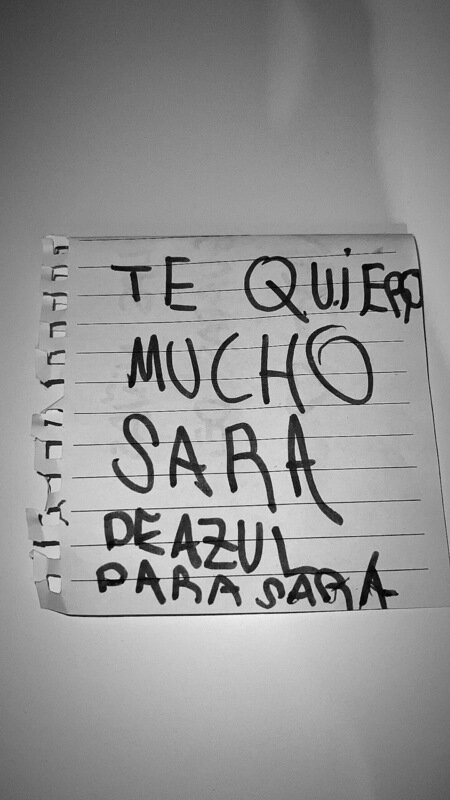 TE QUiERO
MUCHO
SARA
DE AZUL
PARA SARA